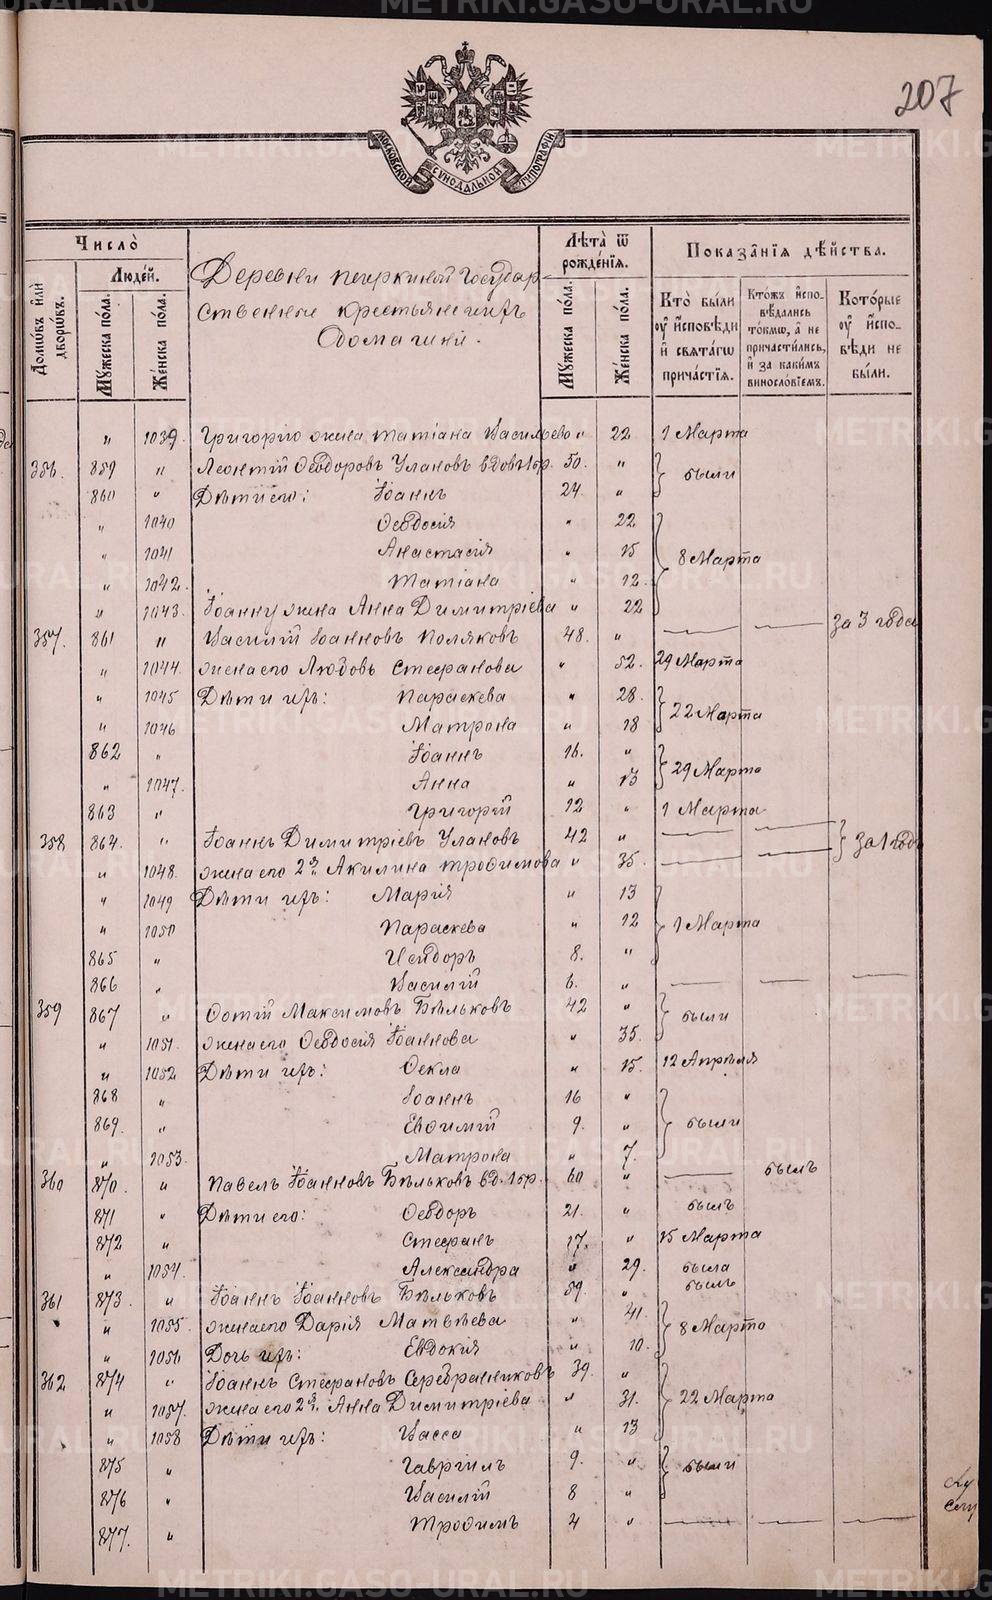 207
МОСКОВСКОЙ СѴНОДАЛЬНОЙ ТИПОГРАФІИ.
Число̀
Домѡ́въ и҆лѝ дворѡ́въ.
Людéй.
Мꙋ́жеска по́ла.
Же́нска по́ла.
Деревни Пешкиной Государ
ственные крестьяне и ихъ
домашніе.
Лѣ́та ѿ рожде́нїѧ.
Мꙋ́жеска по́ла.
Же́нска по́ла.
Показа̑нїѧ дѣ́йства.
Ктò бы́ли ᲂу҆ и҆́сповѣди и҆ свѧта́гѡ причáстїѧ.
Кто́жъ и҆спо-вѣ́дались то́кмѡ, а҆ не причасти́лись, и҆ за каки́мъ винослóвїемъ.
Кото́рые ᲂу҆ и҆́спо-вѣди не бы́ли.
" 1039. Григорію жена Татіана Васильево " 22 1 Марта
356. 859 " Леонтій Ѳеодоровъ Улановъ вдовъ 1 бр. 50. " были
860 " Дѣти его: Іоаннъ 24. "
" 1040 Ѳеодосія " 22
" 1041 Анастасія " 15 8 Марта
" 1042. Татіана " 12.
" 1043. Іоанну жена Анна Димитріева " 22
357. 861 " Василій Іоанновъ Поляковъ 48. " за 3 года
" 1044. жена его Любовь Стефанова " 52. 29 Марта
" 1045 Дѣти ихъ: Параскева " 28.
" 1046 Матрона " 18 22 Марта
862 " Іоаннъ 16. "
" 1047. Анна " 13 29 Марта
863 " Григорій 12 " 1 Марта
358 864. " Іоаннъ Димитріевъ Улановъ 42 " за 1 годъ
" 1048. жена его 2а Акилина Трофимова " 35.
" 1049 Дѣти ихъ: Марія " 13
" 1050 Параскева " 12 1 Марта
865 " Исидоръ 8. "
866 " Василій 6. "
359 867 " Фотій Максимовъ Бѣльковъ 42 " были
" 1051. жена его Ѳеодосія Іоаннова " 35.
" 1052 Дѣти ихъ: Ѳекла " 15. 12 Апрѣля
868 " Іоаннъ 16 "
869. " Евѳимій 9. " были
" 1053. Матрона " 7.
360 870. " Павелъ Іоанновъ Бѣльковъ вд. 1 бр. 60 " былъ
871 " Дѣти его: Ѳеодоръ 21. " былъ
872 " Стефанъ 17. " 15 Марта
" 1054. Александра " 29. была
361 873. " Іоаннъ Іоанновъ Бѣльковъ 59. " былъ
" 1055. жена его Дарія Матвѣева " 41.
" 1056 Дочь ихъ: Евдокія " 10. 8 Марта
362 874 " Іоаннъ Стефановъ Серебрянниковъ 39. "
" 1057. жена его 2а Анна Димитріева " 31. 22 Марта
" 1058 Дѣти ихъ: Васса " 13
875 " Гавріилъ 9. " были
876 " Василій 8 "
877. " Трофимъ 4 "
METRIKI.GASO-URAL.RU